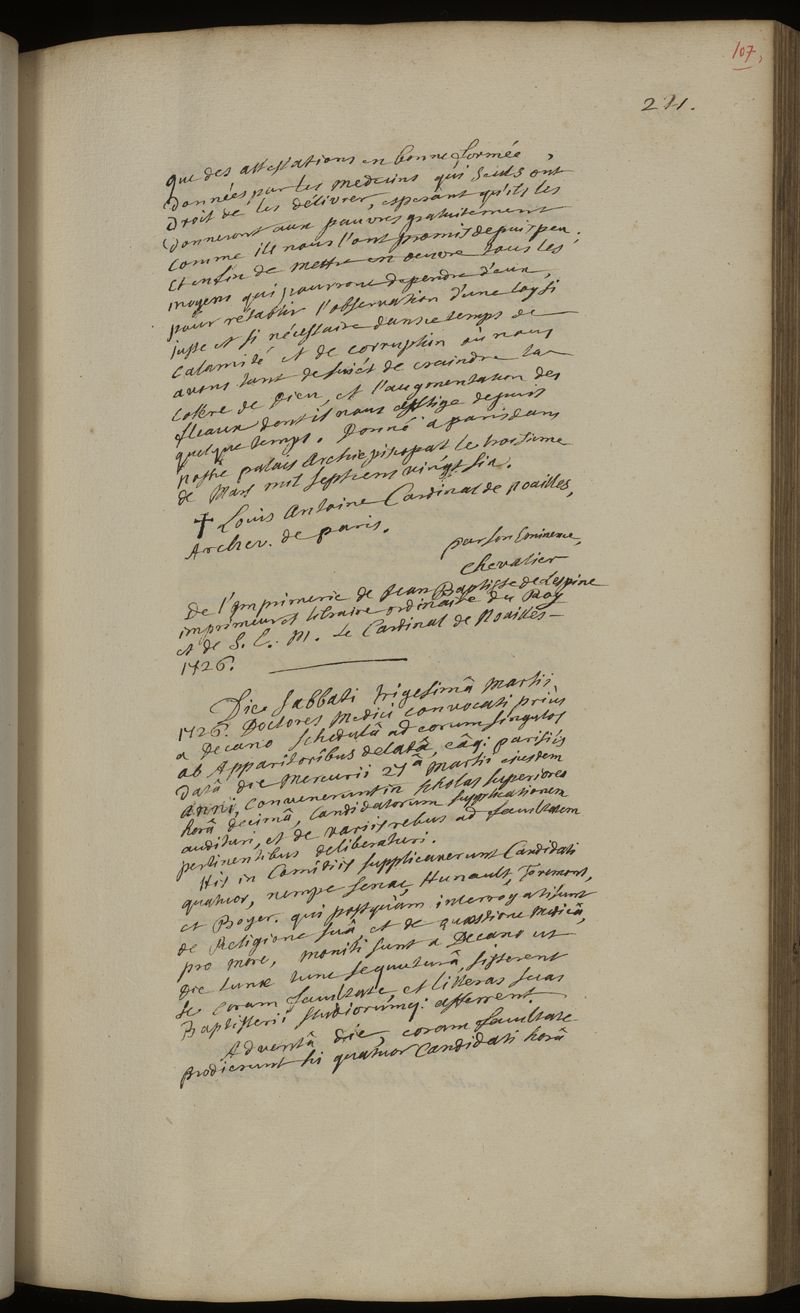 107,
211.
que des attestations en bonne forme
Données par les medecins qui seuls ont
Droit de les délivrer, esperant qu'ils les
Donneront aux pauvres gratuitement
comme ils nous l'ont promis depuis peu.
Et enfin de mettre en oeuvre tous les
moyens qui pourront dependre d'eux,
pour rétablir l'observation d'une loy si
juste et si nécessaire dans ce temps de
calamité et de corruption où nous
avons tant de sujét de craindre la
colére de Dieu, et l'augmentation des
fleaux dont il nous afflige depuis
quelque temps. Donné a paris dans
nostre palais Archiepiscopal le troisième
de Mars mil septcens vingt six.
✝ Louis Antoine Cardinal de Noailles,
Archev. de paris.
par son Eminence,
Chevalier
De l'Imprimerie de Jean Baptiste de Lespine
imprimeur et libraire ordinaire du Roy
et de S. E. M. Le Cardinal de Noailles
1726.
Die Sabbati trigesimâ Martii
1726. Doctores Medici convocati prius
a Decano schedulâ ad eorum singulos
ab Apparitoribus delatâ, eâq; parisiis
Datâ die Mercurii 27â Martii ejusdem
anni, convenerunt in scholas superiores
horâ decimâ, candidatorum supplicationem
audituri, et de variis rebus ad facultatem
pertinentibus deliberaturi.
His in Comitiis supplicaverunt Candidati
quatuor, nempe Senac, Hunault,
et Boyer. qui postquàm interrogati sunt
de Religione suâ, et de quaestione medicâ,
pro more, moniti sunt a Decano ut
die lunae tunc sequuturâ, sisterent
se coram facultate, et litteras suas
Baptisterii studiorumq; afferrent
Adventâ die, coram facultate
prodierunt hi quatuor Candidati horâ